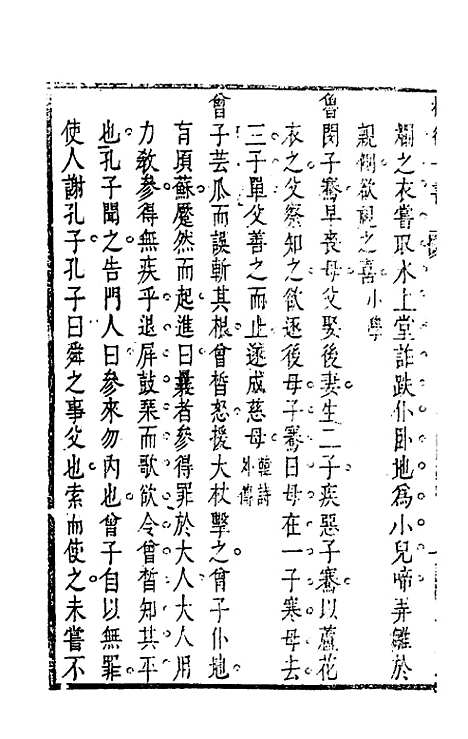 斕之衣嘗取水上堂詐跌仆臥地爲小兒啼弄雛於
親側欲親之喜小學
魯閔子騫早喪母父娶後妻生二子疾惡子騫以蘆花
衣之父察知之欲逐後母子騫曰母在一子寒母去
三子單父善之而止遂成慈母韓詩外傳
曾子芸瓜而誤斬其根曾晳怒援大杖擊之曾子仆地
有頃蘇蹷然而起進曰曩者參得罪於大人大人用
力敎參得無疾乎退屏鼓琹而歌欲令曾晳知其平
也孔子聞之告門人曰參來勿內也曾子自以無罪
使人謝孔子孔子曰舜之事父也索而使之未嘗不